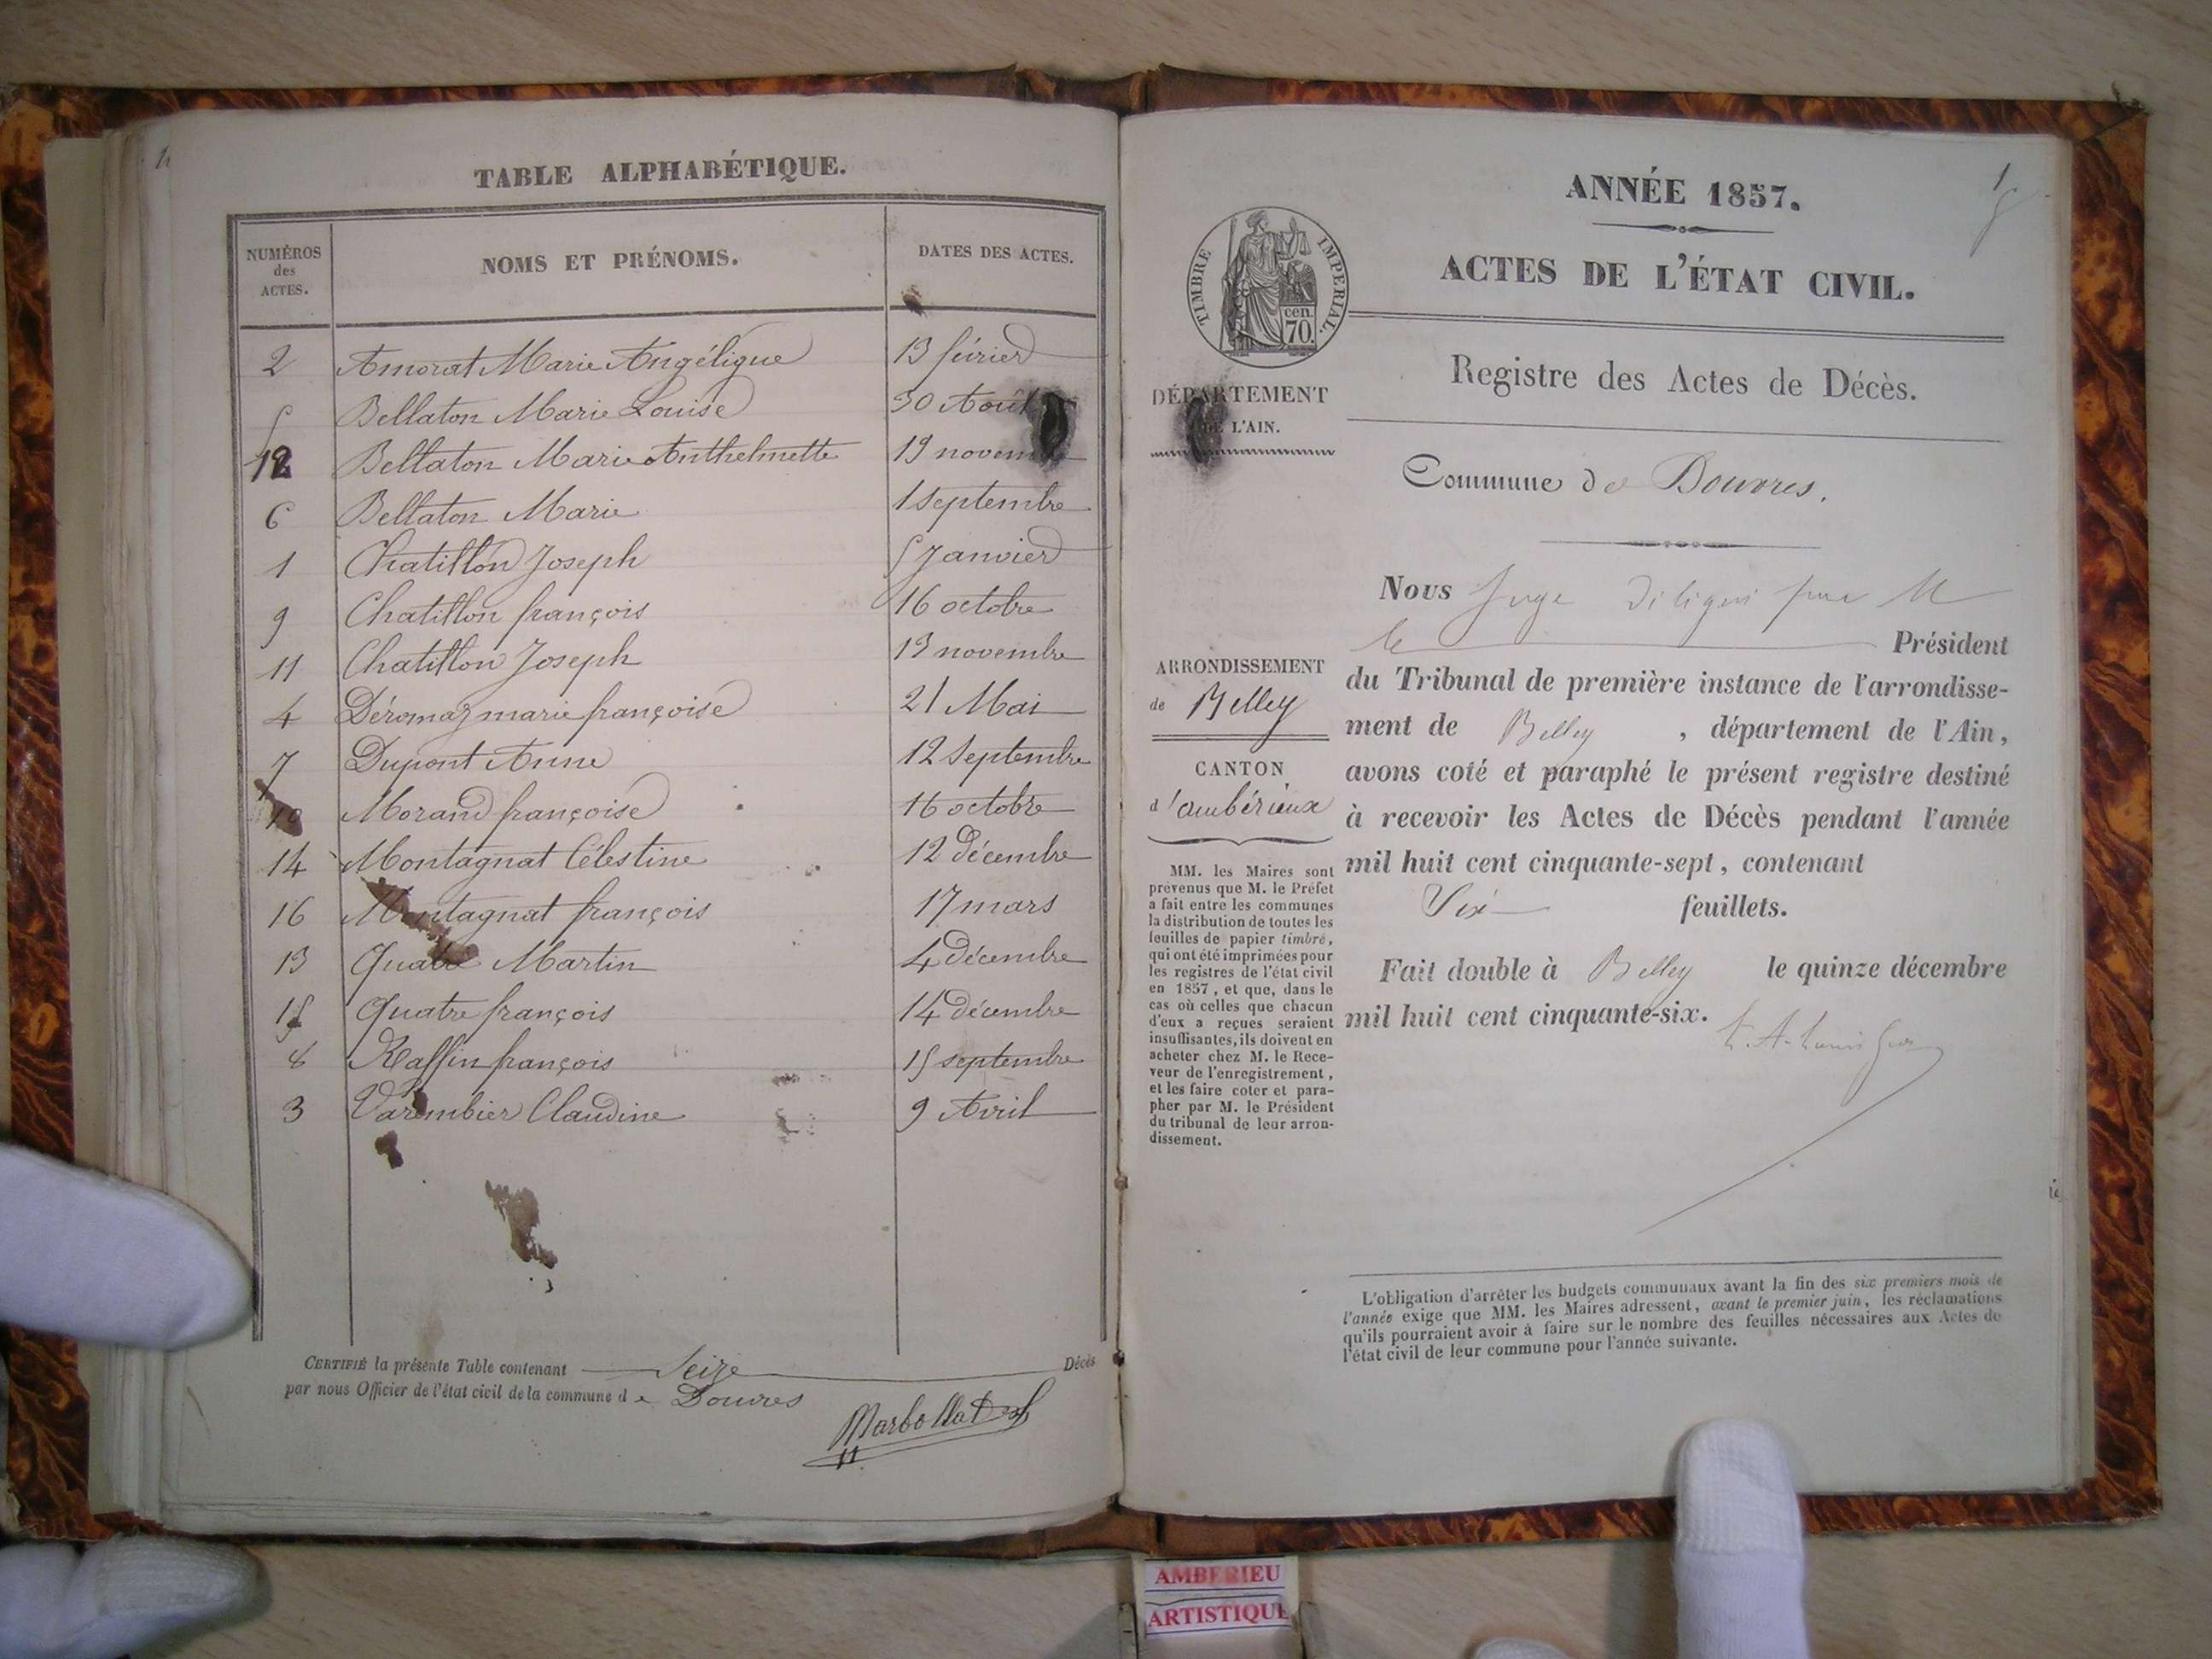 TABLE ALPHABÉTIQUE.
NUMÉROS des ACTES. NOMS ET PRÉNOMS. DATES DES ACTES.
2 Amorat Marie Angélique 13 février
5 Bellaton Marie Louise 30 Août
12 Bellaton Marie Anthelmette 19 novembre
6 Bellaton Marie 1 septembre
1 Chatillon Joseph 5 Janvier
9 Chatillon françois 16 octobre
11 Chatillon Joseph 13 novembre
4 Déromaz marie françoise 21 Mai
7 Dupont Anne 12 Septembre
10 Morand françoise 16 octobre
14 Montagnat Célestine 12 Décembre
16 Montagnat françois 17 mars
13 Quatre Martin 4 Décembre
15 Quatre françois 14 Décembre
8 Raffin françois 15 septembre
3 Varembier Claudine 9 Avril
CERTIFIÉ la présente Table contenant Seize Décès
par nous Officier de l'état civil de la commune de Douvres
Marbollat
1
ANNÉE 1857.
ACTES DE L'ÉTAT CIVIL.
TIMBRE IMPÉRIAL.
cen.
70.
Registre des Actes de Décès.
DÉPARTEMENT
DE L'AIN.
Commune de Douvres.
ARRONDISSEMENT
de Belley
CANTON
d'ambérieux
MM. les Maires sont
prévenus que M. le Préfet
a fait entre les communes
la distribution de toutes les
feuilles de papier timbré,
qui ont été imprimées pour
les registres de l'état civil
en 1857, et que, dans le
cas où celles que chacun
d'eux a reçues seraient
insuffisantes, ils doivent en
acheter chez M. le Rece-
veur de l'enregistrement,
et les faire coter et para-
pher par M. le Président
du tribunal de leur arron-
dissement.
Nous Juge par M
le Président
du Tribunal de première instance de l'arrondisse-
ment de Belley, département de l'Ain,
avons coté et paraphé le présent registre destiné
à recevoir les Actes de Décès pendant l'année
mil huit cent cinquante-sept, contenant
Six feuillets.
Fait double à Belley le quinze décembre
mil huit cent cinquante-six.
L'obligation d'arrêter les budgets communaux avant la fin des six premiers mois de
l'année exige que MM. les Maires adressent, avant le premier juin, les réclamations
qu'ils pourraient avoir à faire sur le nombre des feuilles nécessaires aux Actes de
l'état civil de leur commune pour l'année suivante.
AMBERIEU
ARTISTIQUE